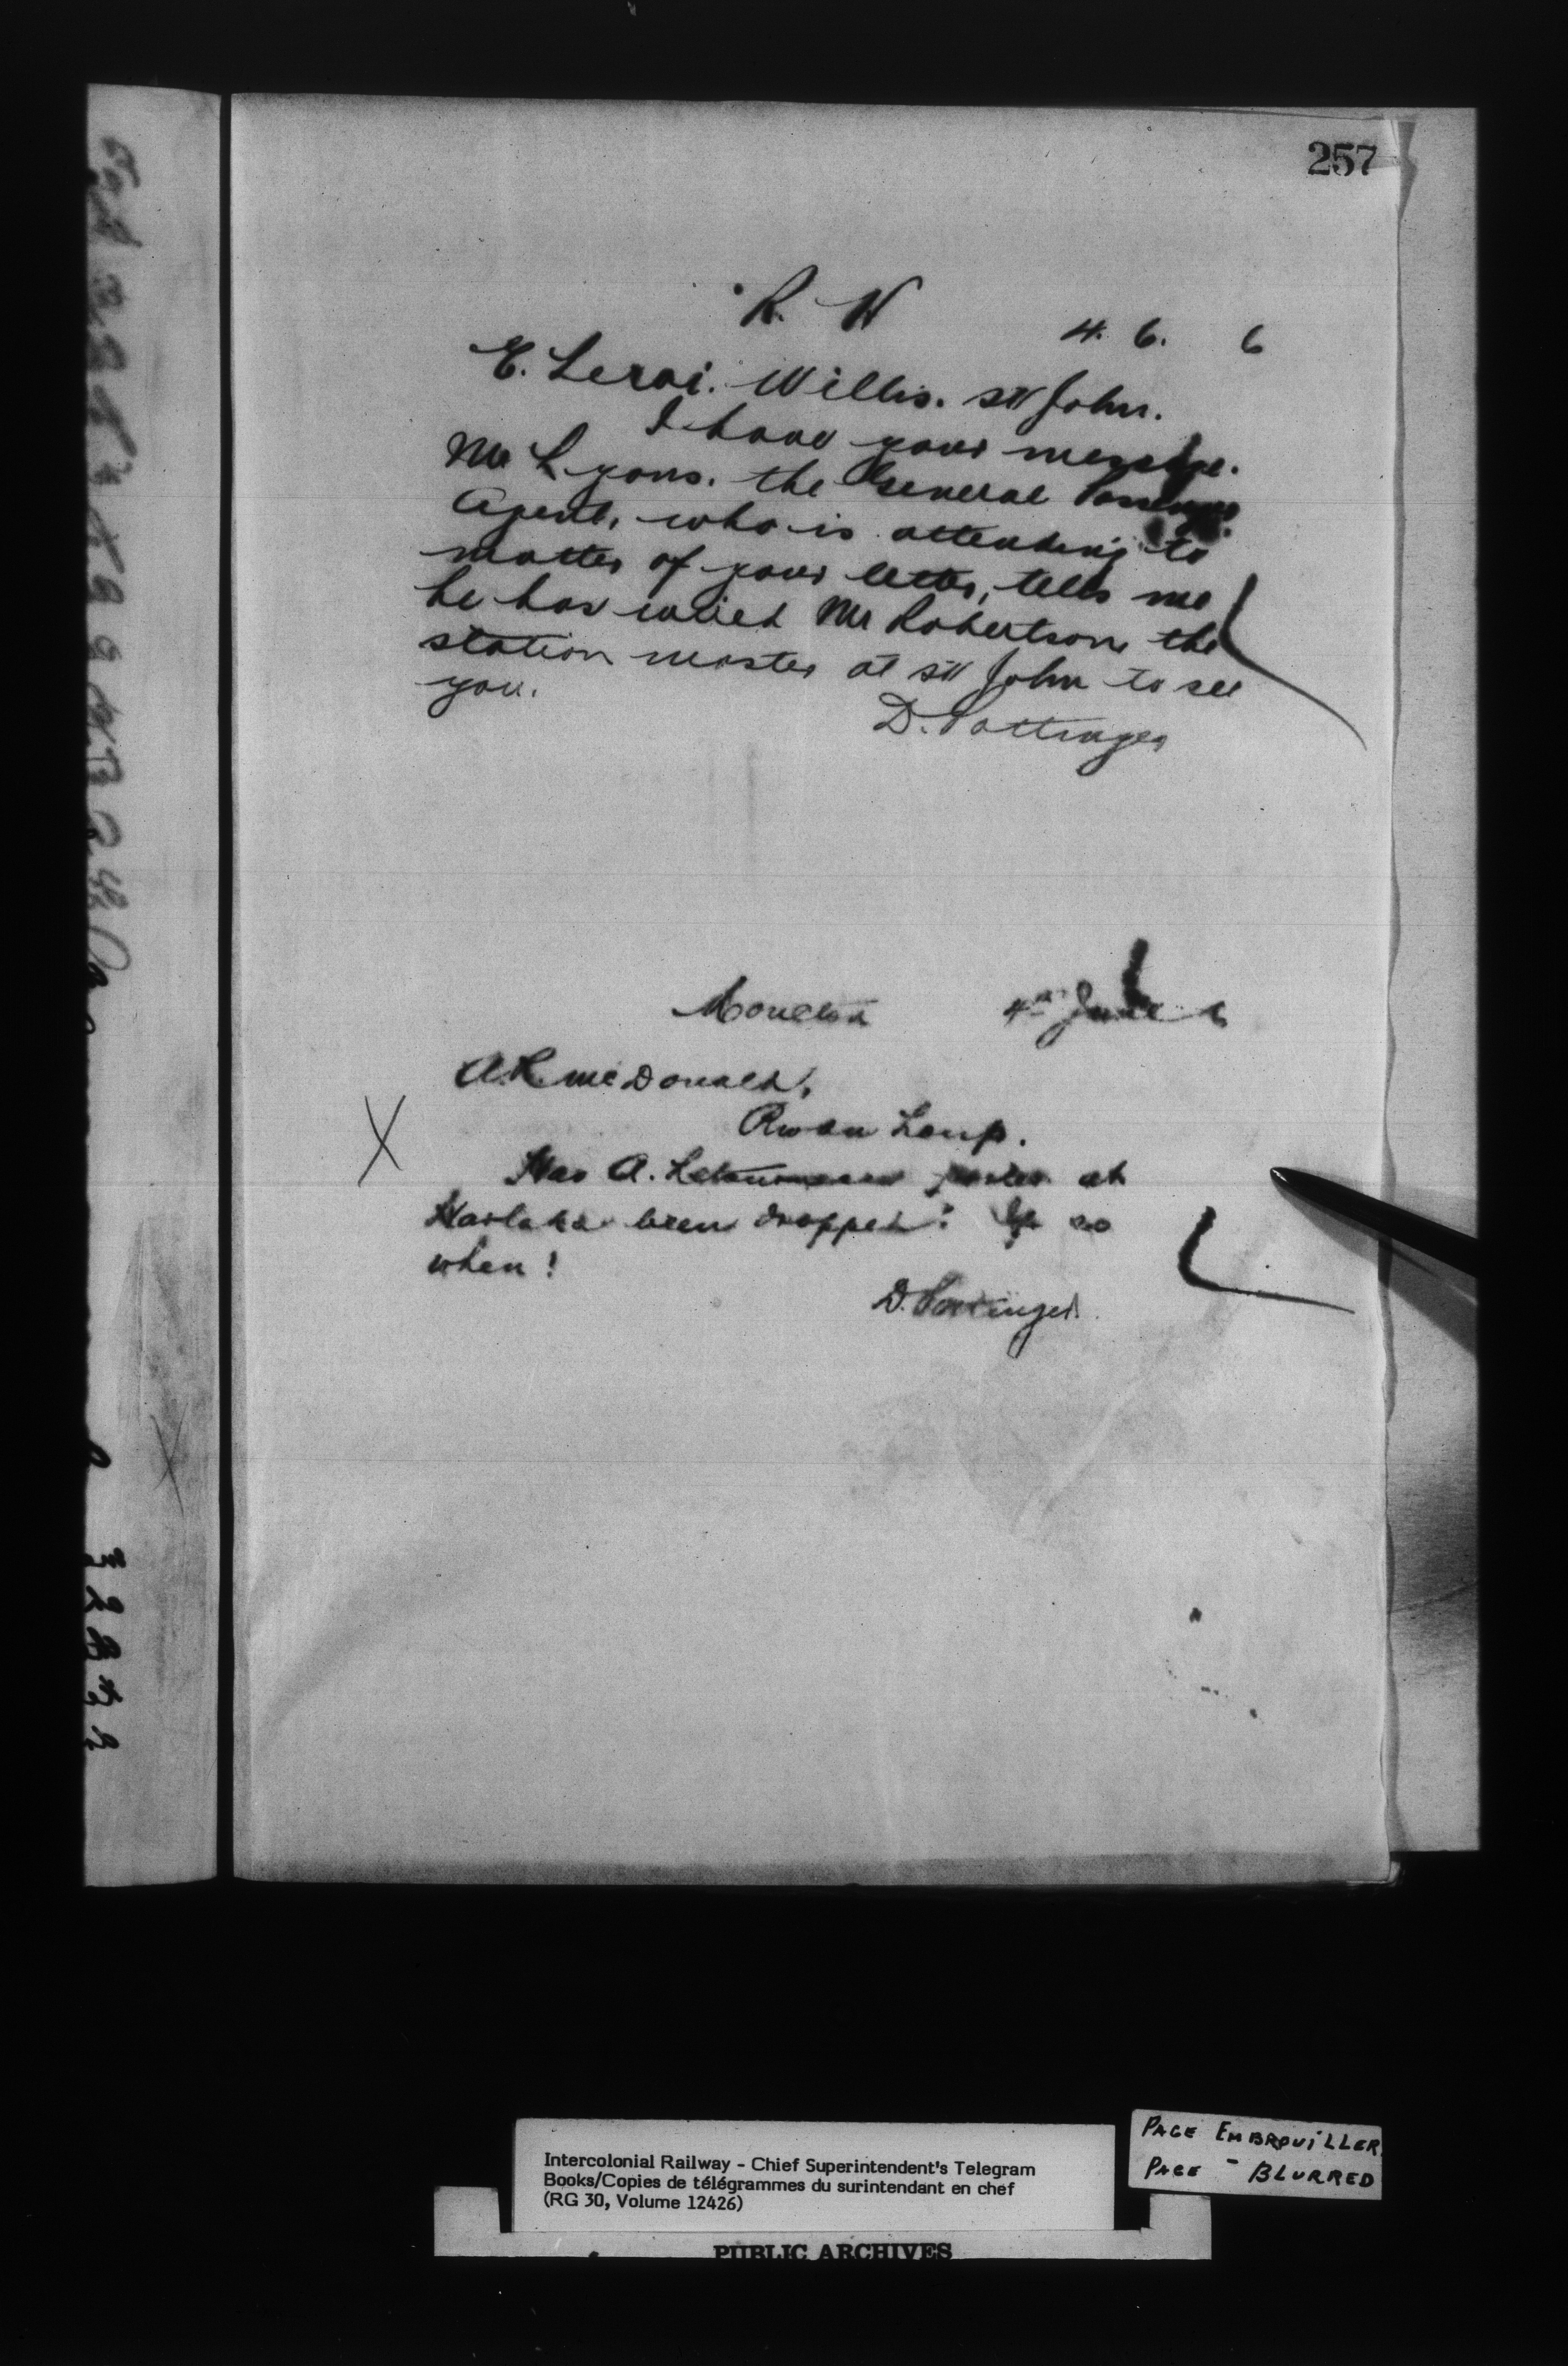 257
R. W
4. 6. 6
E. Leroi. Willis. St John.
I have your message.
Mr Lyons. the General Passenger
Agent, who is attending to
matter of your letter, tells me
he has wired Mr Robertson, the
station master at St John to see
you.
D. Pottinger
Moncton 4th June 6
A.R. McDonald,
River Loup.
Has A. porter at
Harlaka been dropped? If so
when?
D. Pottinger
Intercolonial Railway - Chief Superintendent's Telegram
Books/Copies de télégrammes du surintendant en chef
(RG 30, Volume 12426)
PUBLIC ARCHIVES
PAGE EMBROUILLER
PAGE - BLURRED